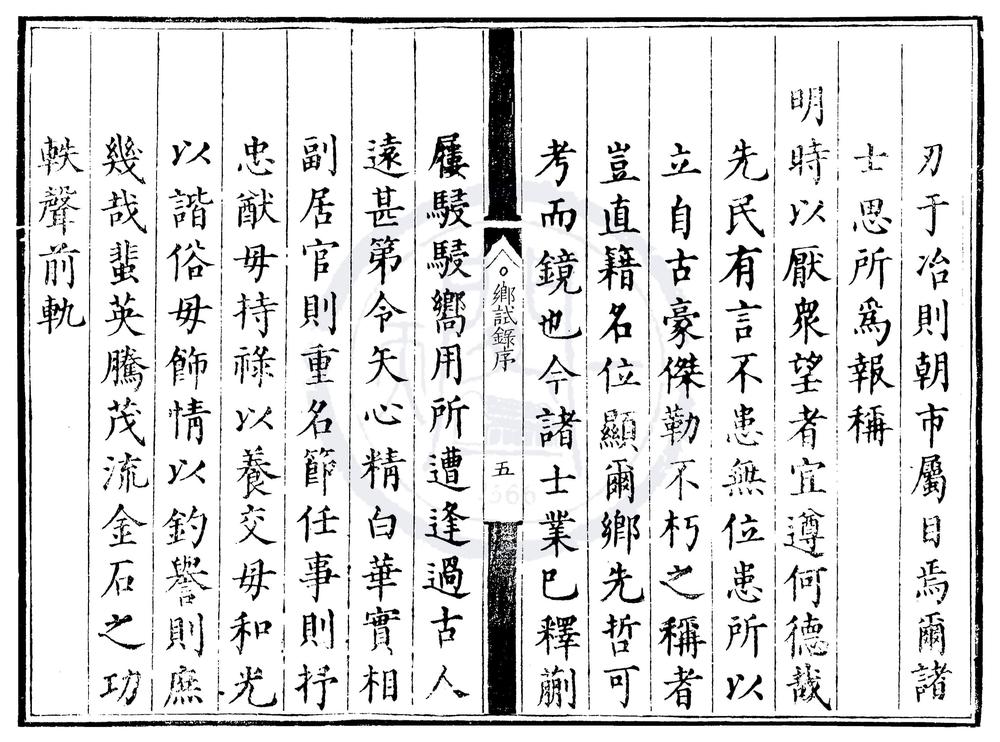 刃于冶則朝市屬目焉爾諸
士思所爲報稱
明時以厭衆望者宜遵何德哉
先民有言不患無位患所以
立自古豪傑勒不朽之稱者
豈直籍名位顯爾鄉先哲可
考而鏡也今諸士業已釋蒯
鄉試錄序
五
屨駸駸嚮用所遭逢過古人
遠甚第令矢心精白華實相
副居官則重名節任事則抒
忠猷毋持祿以養交毋和光
以諧俗毋飾情以釣譽則庶
幾哉蜚英騰茂流金石之功
軼聲前軌